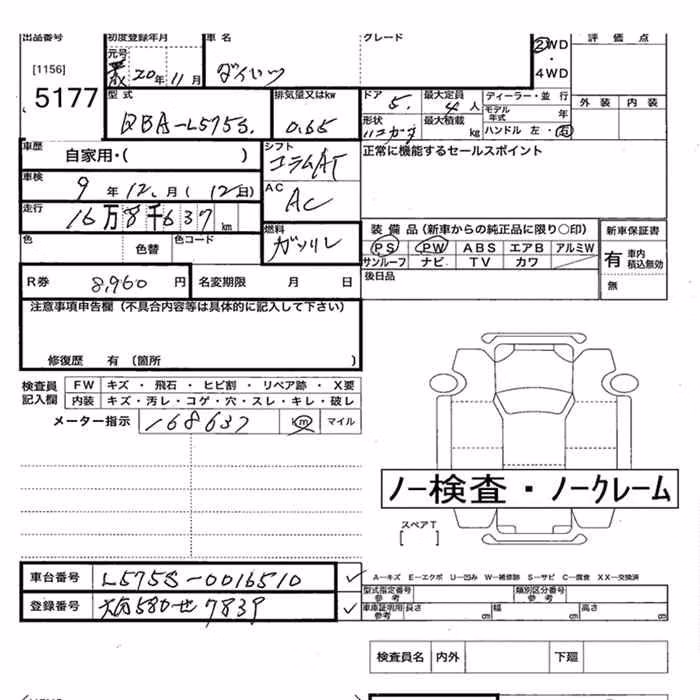 出品番号 初度登録年月 車名 グレード 評価点
元号
[1156] 20年11月 ダイハツ 2WD
・
4WD
5177
型式 排気量又はkw ドア 最大定員 ディーラー・並行 外装 内装
QBA-L575S. 0.65 5. 4人 モデル年式 年
形状 最大積載 kg ハンドル 左・右
車歴 自家用・( ) シフト コラムAT 正常に機能するセールスポイント
車検 9年12月(12日) AC AC
走行 16万8千637km
色 色替 色コード 燃料 ガソリン
装備品(新車からの純正品に限り○印) 新車保証書
PS PW ABS エアB アルミW 有 車内積込無効
サンルーフ ナビ TV カワ
R券 8,960円 名変期限 月 日 後日品 無
注意事項申告欄(不具合内容等は具体的に記入して下さい)
修復歴 有(箇所 )
検査員記入欄 FW キズ・飛石・ヒビ割・リペア跡・X要
内装 キズ・汚レ・コゲ・穴・スレ・キレ・破レ
メーター指示 168637 km マイル
ノー検査・ノークレーム
スペアT
[ ]
車台番号 L575S-0016510 ✓ A-キズ E-エクボ U-凹み W-補修跡 S-サビ C-腐食 XX-交換済
型式指定番号参考 類別区分番号参考
登録番号 580 せ 7839 ✓ 車庫証明用参考 長さ 幅 高さ
検査員名 内外 下廻